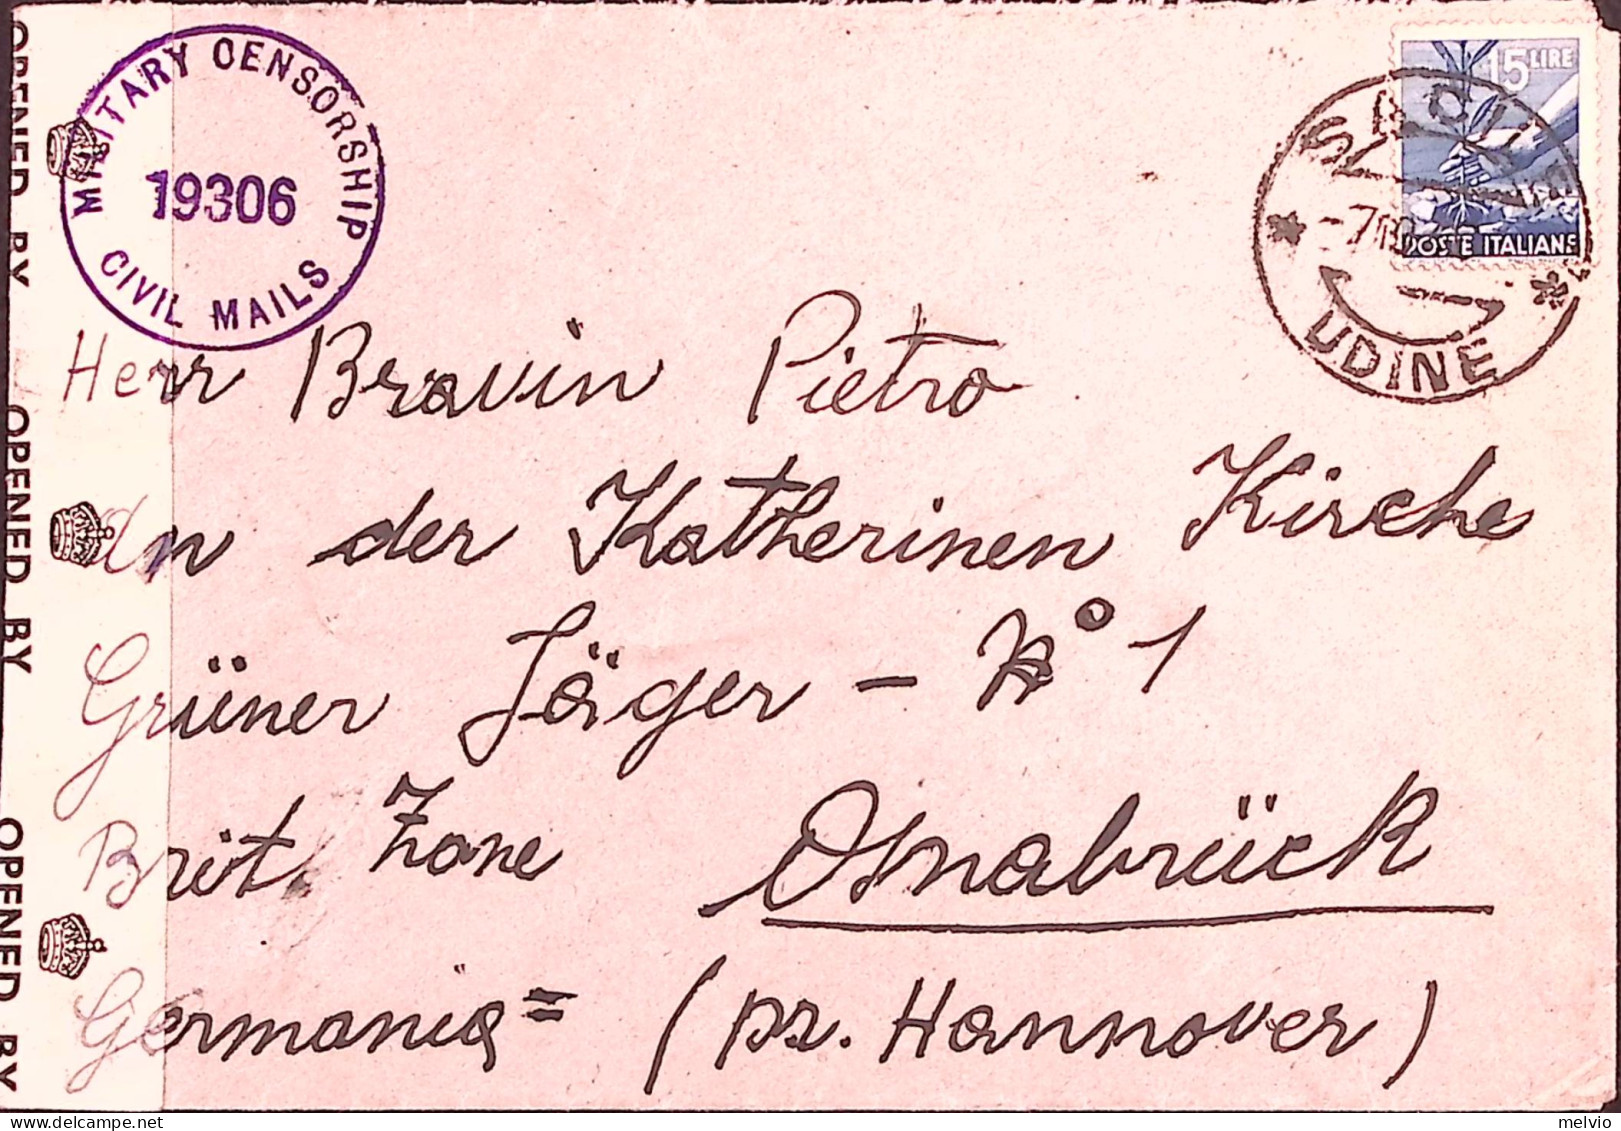 OPENED BY
OPENED BY
OPENED BY
MILITARY CENSORSHIP
19306
CIVIL MAILS
15 LIRE
POSTE ITALIANE
SACILE
-7
UDINE
Herr Bravin Pietro
An der Katherinen Kirche
Grüner Jäger - N° 1
Brit. Zone Osnabrück
Germania = (pr. Hannover)
melvio